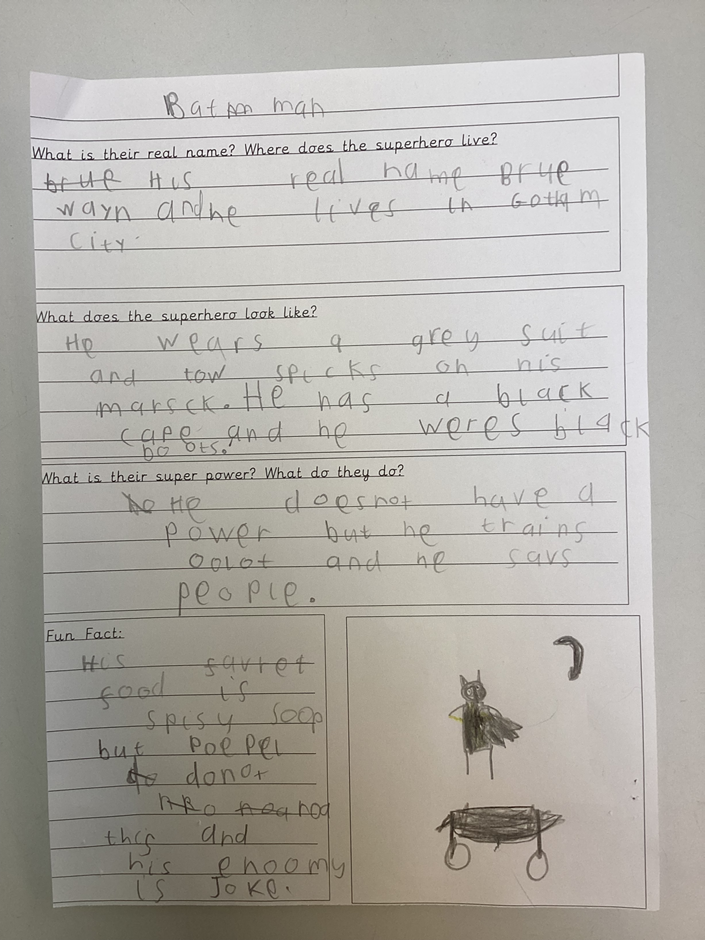 Bat man
What is their real name? Where does the superhero live?
brue His real name Brue
wayn and he lives in Gotham
City.
What does the superhero look like?
He wears a grey suit
and tow spicks on his
marsck. He has a black
cape and he weres black
bo ots.
What is their super power? What do they do?
He doesnot have a
power but he trains
oolot and he savs
people.
Fun Fact:
His favret
food is
spisy soop
but poepel
donot
this and
his enoomy
is Joke.